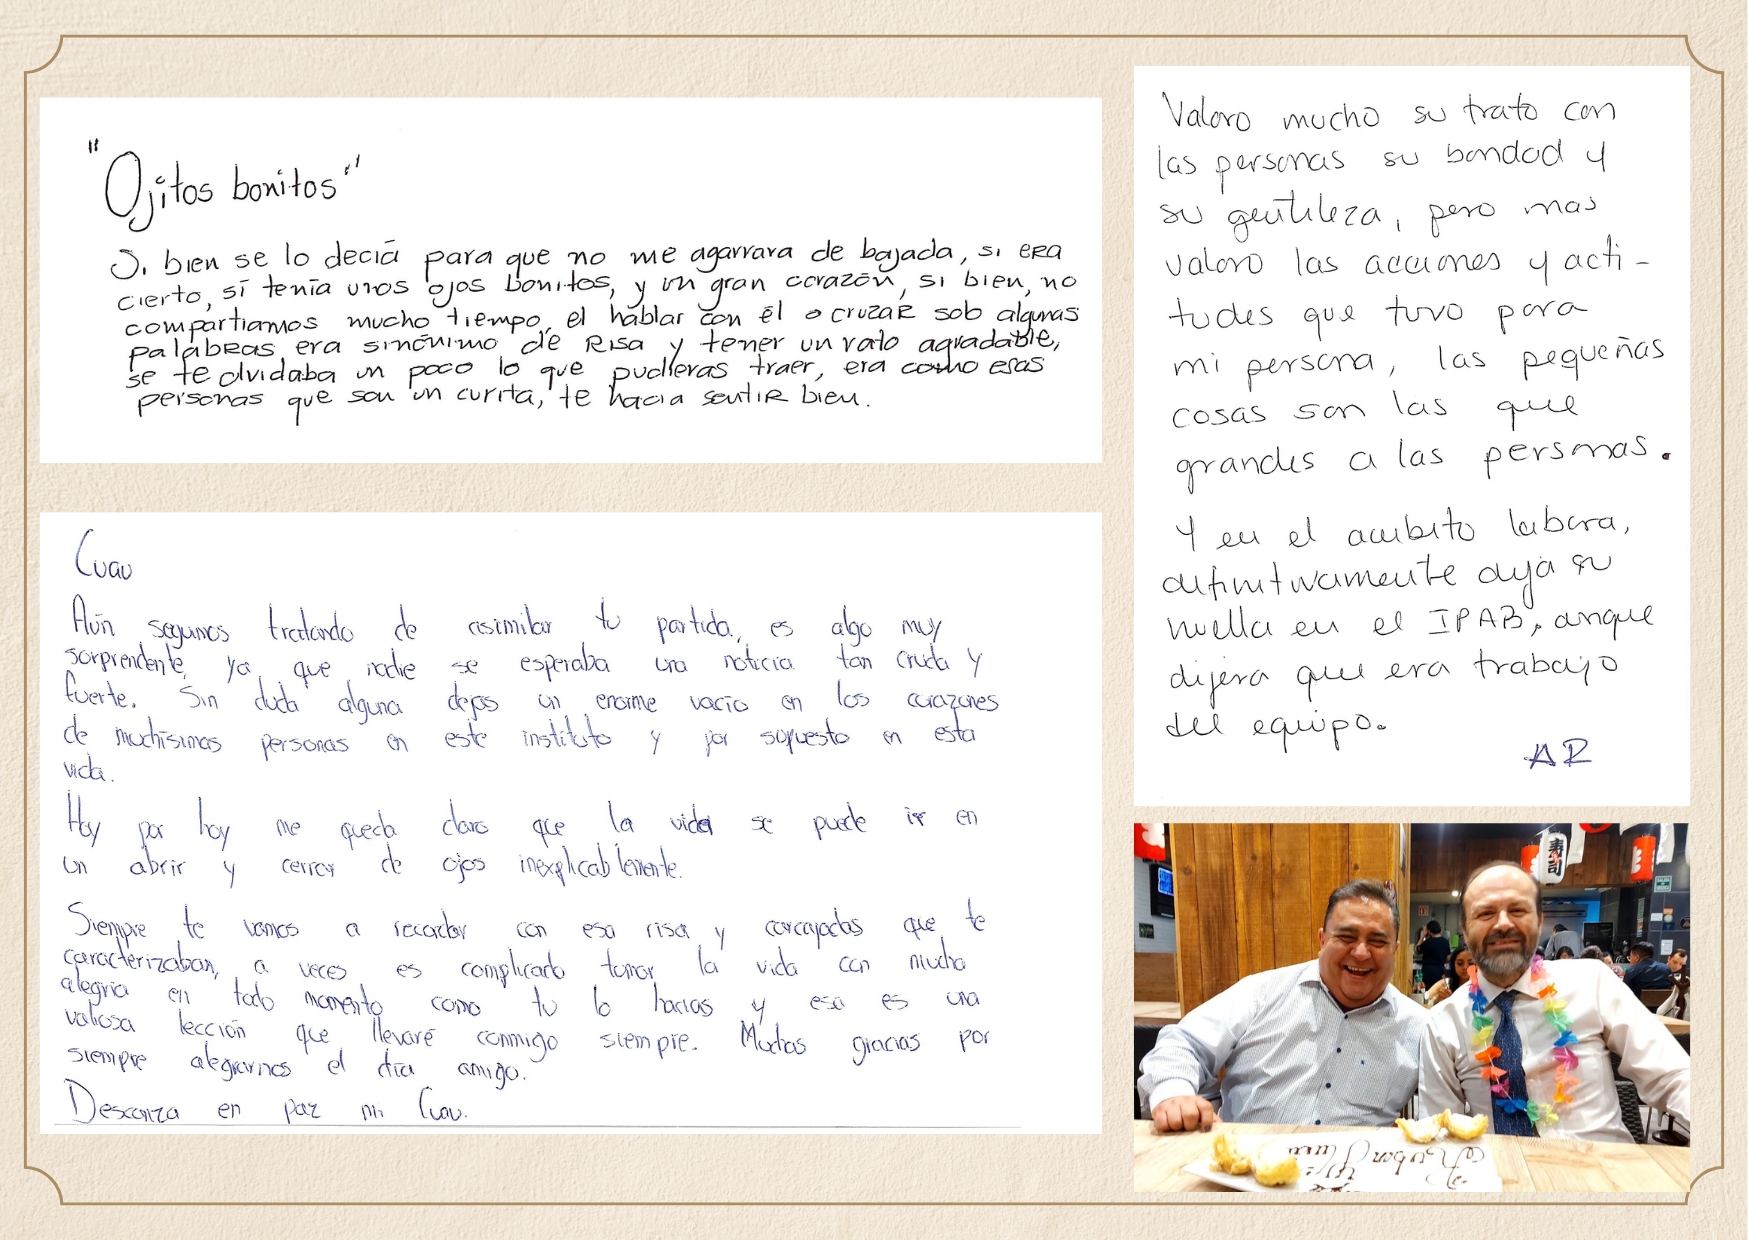 "Ojitos bonitos"
Si bien se lo decía para que no me agarrara de bajada, si ERA
cierto, sí tenía unos ojos bonitos, y un gran corazón, si bien, no
compartiamos mucho tiempo, el hablar con él o cruzar sob algunas
palabras, era sinónimo de Risa y tener un rato agradable,
se te olvidaba un poco lo que pudieras traer, era como esas
personas que son un curita, te hacia sentir bien.
Cuau
Aún seguimos tratando de asimilar tu partida, es algo muy
sorprendente, ya que nadie se esperaba una noticia tan cruda y
fuerte. Sin duda alguna dejas un enorme vacío en los corazones
de muchísimas personas en este instituto y por supuesto en esta
vida.
Hoy por hoy me queda claro que la vida se puede ir en
un abrir y cerrar de ojos inexplicablemente.
Siempre te vamos a recordar con esa risa y carcajadas que te
caracterizaban, a veces es complicado tomar la vida con mucha
alegria en todo momento como tu lo hacias y esa es una
valiosa lección que llevaré conmigo siempre. Muchas gracias por
siempre alegrarnos el día amigo.
Descanza en paz mi Cuau.
Valoro mucho su trato con
las personas su bondad y
su gentileza, pero mas
valoro las acciones y acti-
tudes que tuvo para
mi persona, las pequeñas
cosas son las que
grandes a las personas.
Y en el ambito labora,
definitivamente deja su
huella en el IPAB, anque
dijera que era trabajo
del equipo.
AR
寿司
Ruben